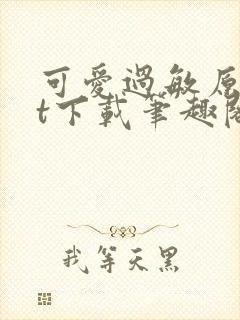 可愛過敏原
t下載筆趣閣
我等天黑